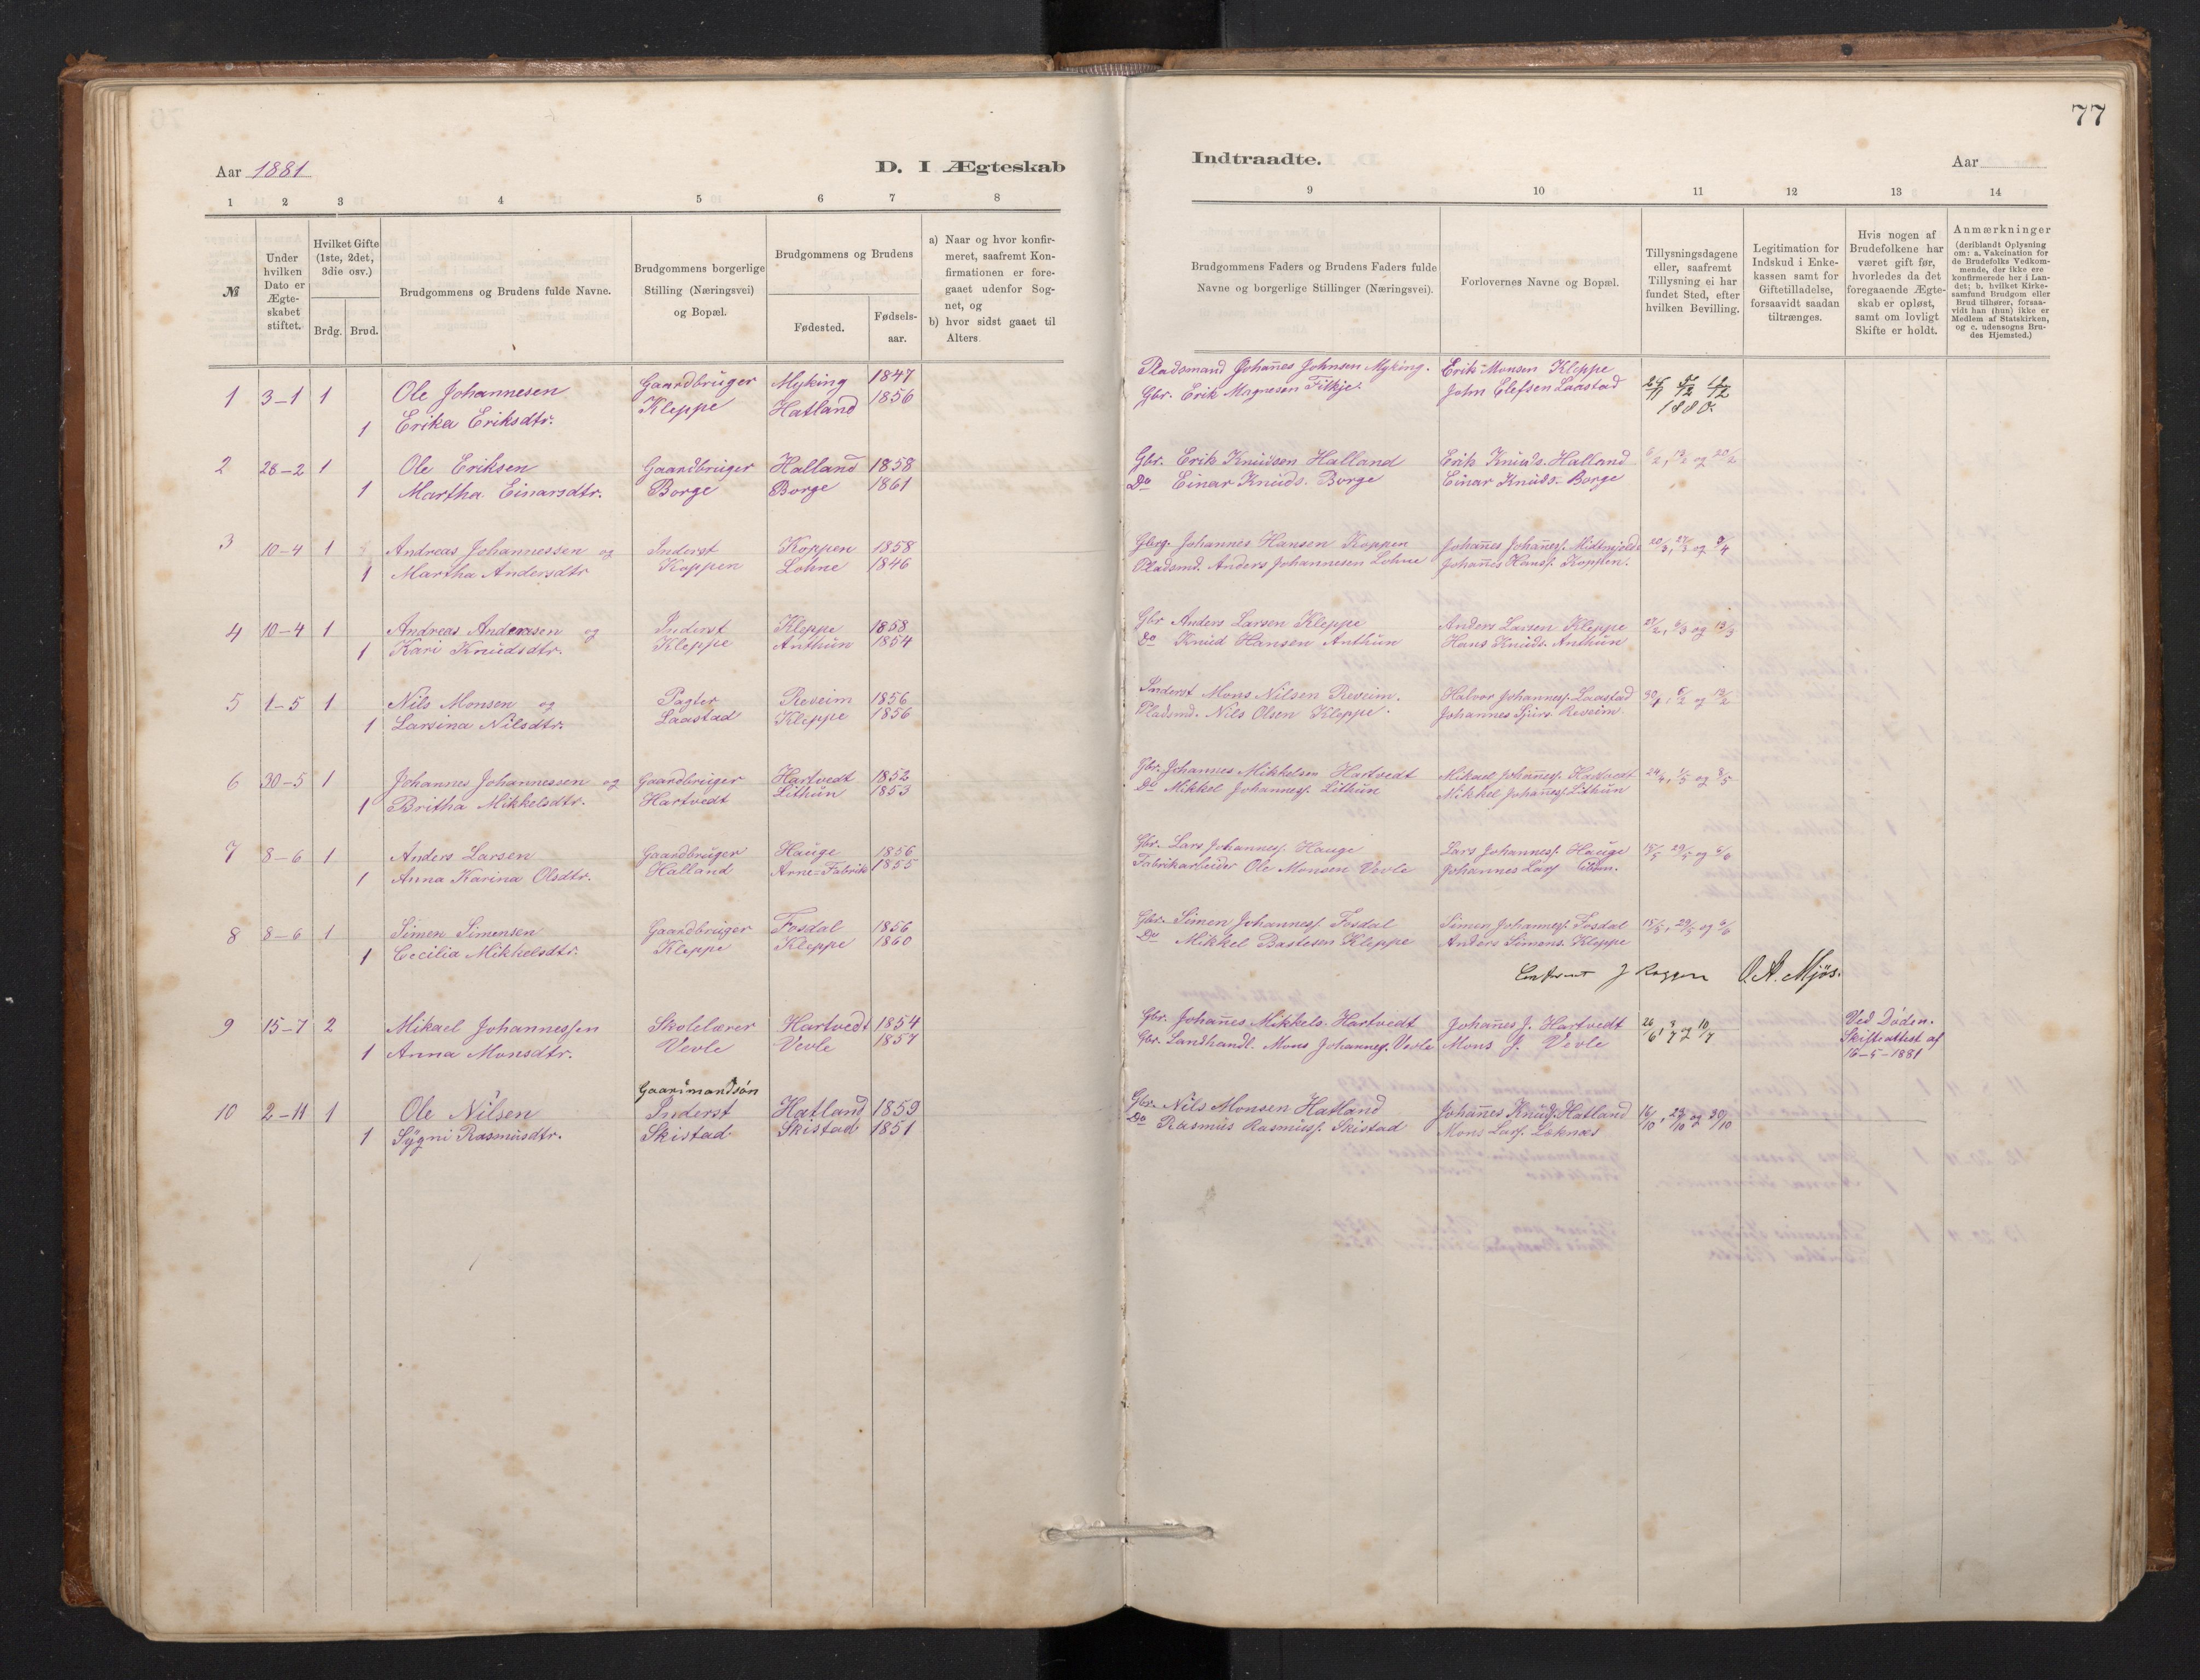 Aar 1881
D. I Ægteskab
1 2 3 4 5 6 7 8
№
Under hvilken Dato er Ægteskabet stiftet.
Hvilket Gifte (1ste, 2det, 3die osv.)
Brdg. Brud.
Brudgommens og Brudens fulde Navne.
Brudgommens borgerlige Stilling (Næringsvei) og Bopæl.
Brudgommens og Brudens
Fødested.
Fødselsaar.
a) Naar og hvor konfirmeret, saafremt Konfirmationen er foregaaet udenfor Sognet, og
b) hvor sidst gaaet til Alters.
1 3-1 1 Ole Johannesen Gaardbruger Myking 1847
1 Erika Eriksdtr. Kleppe Hatland 1856
2 28-2 1 Ole Eriksen Gaardbruger Halland 1858
1 Martha Einarsdtr. Borge Borge 1861
3 10-4 1 Andreas Johannessen og Inderst Koppen 1858
1 Martha Andersdtr Koppen Lohne 1846
4 10-4 1 Andreas Andersen og Inderst Kleppe 1858
1 Kari Knudsdtr. Kleppe Anthun 1854
5 1-5 1 Nils Monsen og Pagter Reveim 1856
1 Larsina Nilsdtr. Laastad Kleppe 1856
6 30-5 1 Johannes Johannessen og Gaardbruger Hartvedt 1852
1 Britha Mikkelsdtr. Hartvedt Lithun 1853
7 8-6 1 Anders Larsen Gaardbruger Hauge 1856
1 Anna Karina Olsdtr. Halland Arne-Fabrik 1855
8 8-6 1 Simen Simensen Gaardbruger Fosdal 1856
1 Cecilia Mikkelsdtr. Kleppe Kleppe 1860
9 15-7 2 Mikael Johannessen Skolelærer Hartvedt 1854
1 Anna Monsdtr. Vevle Vevle 1857
Gaardmandsøn
10 2-11 1 Ole Nilsen Inderst Hatland 1859
1 Sygni Rasmusdtr. Skistad Skistad 1851
77
Indtraadte.
Aar
9 10 11 12 13 14
Brudgommens Faders og Brudens Faders fulde Navne og borgerlige Stillinger (Næringsvei).
Forlovernes Navne og Bopæl.
Tillysningsdagene eller, saafremt Tillysning ei har fundet Sted, efter hvilken Bevilling.
Legitimation for Indskud i Enkekassen samt for Giftetilladelse, forsaavidt saadan tiltrænges.
Hvis nogen af Brudefolkene har været gift før, hvorledes da det foregaaende Ægteskab er opløst, samt om lovligt Skifte er holdt.
Anmærkninger (deriblandt Oplysning om: a. Vakcination for de Brudefolks Vedkommende, der ikke ere konfirmerede her i Landet; b. hvilket Kirkesamfund Brudgom eller Brud tilhører, forsaavidt han (hun) ikke er Medlem af Statskirken, og c. udensogns Brudes Hjemsted.)
Pladsmand Johañes Johnsen Myking. Erik Monsen Kleppe
Gbr. Erik Magnesen Fitkje. John Elefsen Laastad 5/12 12/12
1880.
Gbr. Erik Knudsen Halland Erik Knuds. Halland 6/2, 13/2 og 20/2
Do Einar Knuds. Borge Einar Knuds. Borge
Gbrg. Johannes Hansen Koppen Johañes Johañess. Midtmjelde 20/3, 27/3 og 3/4
Pladsmd. Anders Johannesen Lohne Johañes Hanss. Koppen.
Gbr Anders Larsen Kleppe Anders Larsen Kleppe 27/2, 6/3 og 13/3
Do Knud Hansen Anthun Hans Knuds. Anthun
Inderst Mons Nilsen Reveim. Halvor Johannes. Laastad 30/1, 6/2 og 13/2
Pladsmd. Nils Olsen Kleppe. Johannes Sjurs. Reveim
Gbr. Johannes Mikkelsen Hartvedt Mikael Johañess. Hartvedt 24/4, 1/5 og 8/5
Do Mikkel Johanness. Lithun Mikkel Johañess. Lithun
Gbr. Lars Johanness. Hauge Lars Johanness. Hauge 15/5 29/5 og 6/6
Fabrikarbeider Ole Monsen Vevle Johannes Lars. ibm.
Gbr. Simen Johanness. Fosdal Simen Johañess. Fosdal 15/5, 29/5 og 6/6
Do Mikkel Bastesen Kleppe Anders Simens. Kleppe
O. A. Mjøs.
Gbr. Johañes Mikkels. Hartvedt Johañes J. Hartvedt 26/6, 3/7 og 10/7 Ved Døden.
Gbr. Landhandl. Mons Johanness. Vevle Mons J. Vevle Skifteattest af
16-5-1881
Gbr. Nils Monsen Hatland Johañes Knuds. Hatland 16/10, 23/10 og 30/10
Do Rasmus Rasmuss. Skistad Mons Lars. Løknæs